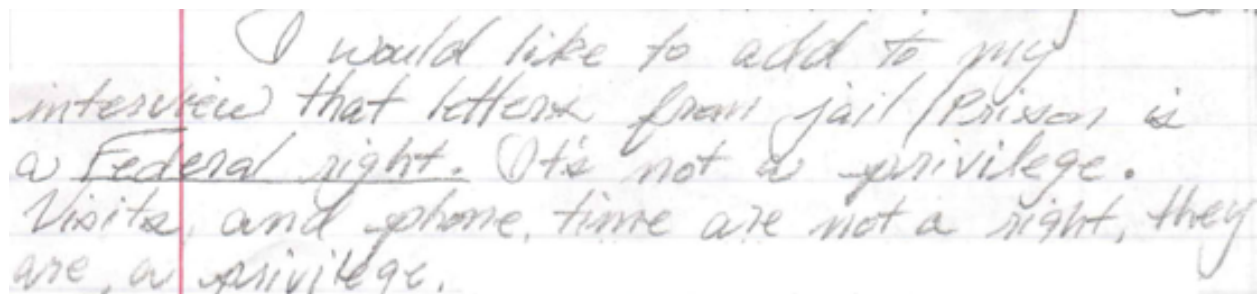 I would like to add to my
interview that letters from jail/Prison is
a Federal right. It's not a privilege.
Visits, and phone, time are not a right, they
are, a privilege.